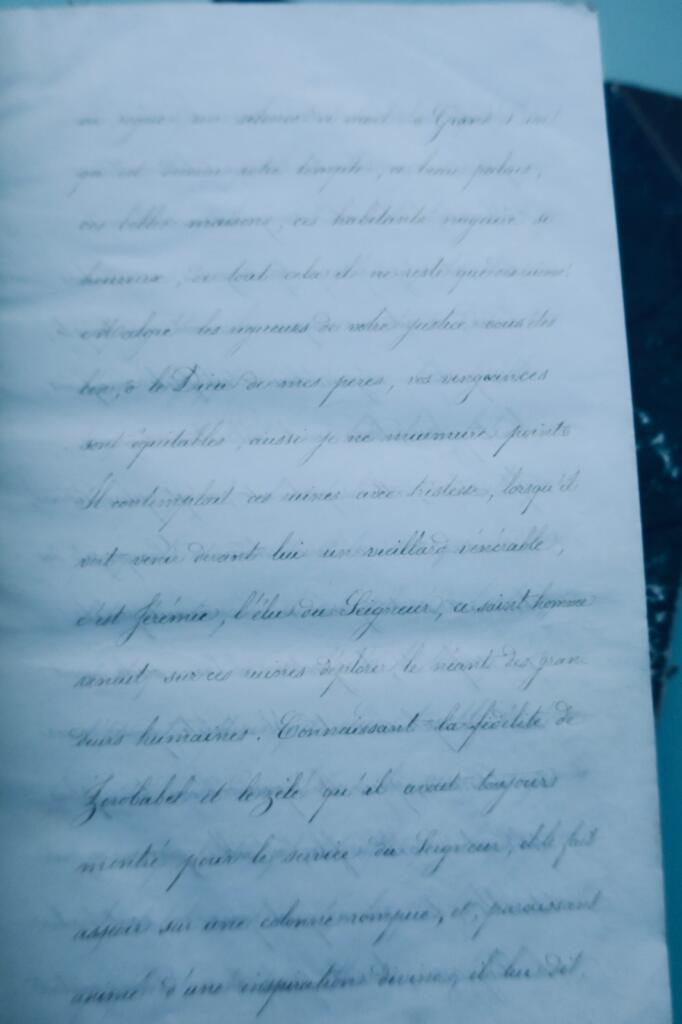 où règne un silence de mort. Grand Dieu
qu'est devenu votre temple, ce beau palais,
ces belles maisons, ces habitants naguère si
heureux, de tout cela il ne reste que
Malgré les rigueurs de votre justice vous êtes
bon, ô le Dieu de mes pères, vos vengeances
sont équitables, aussi je ne murmure point
Il contemplait ces ruines avec tristesse, lorsqu'il
voit venir devant lui un vieillard vénérable,
c'est Jérémie, l'élu du Seigneur, ce saint homme
venait sur ces ruines déplorer le néant des gran
deurs humaines. Connaissant la fidélité de
Zorobabel et le zèle qu'il avait toujours
montré pour le service du Seigneur, il le fait
asseoir sur une colonne rompue, et, paraissant
animé d'une inspiration divine, il lui dit.